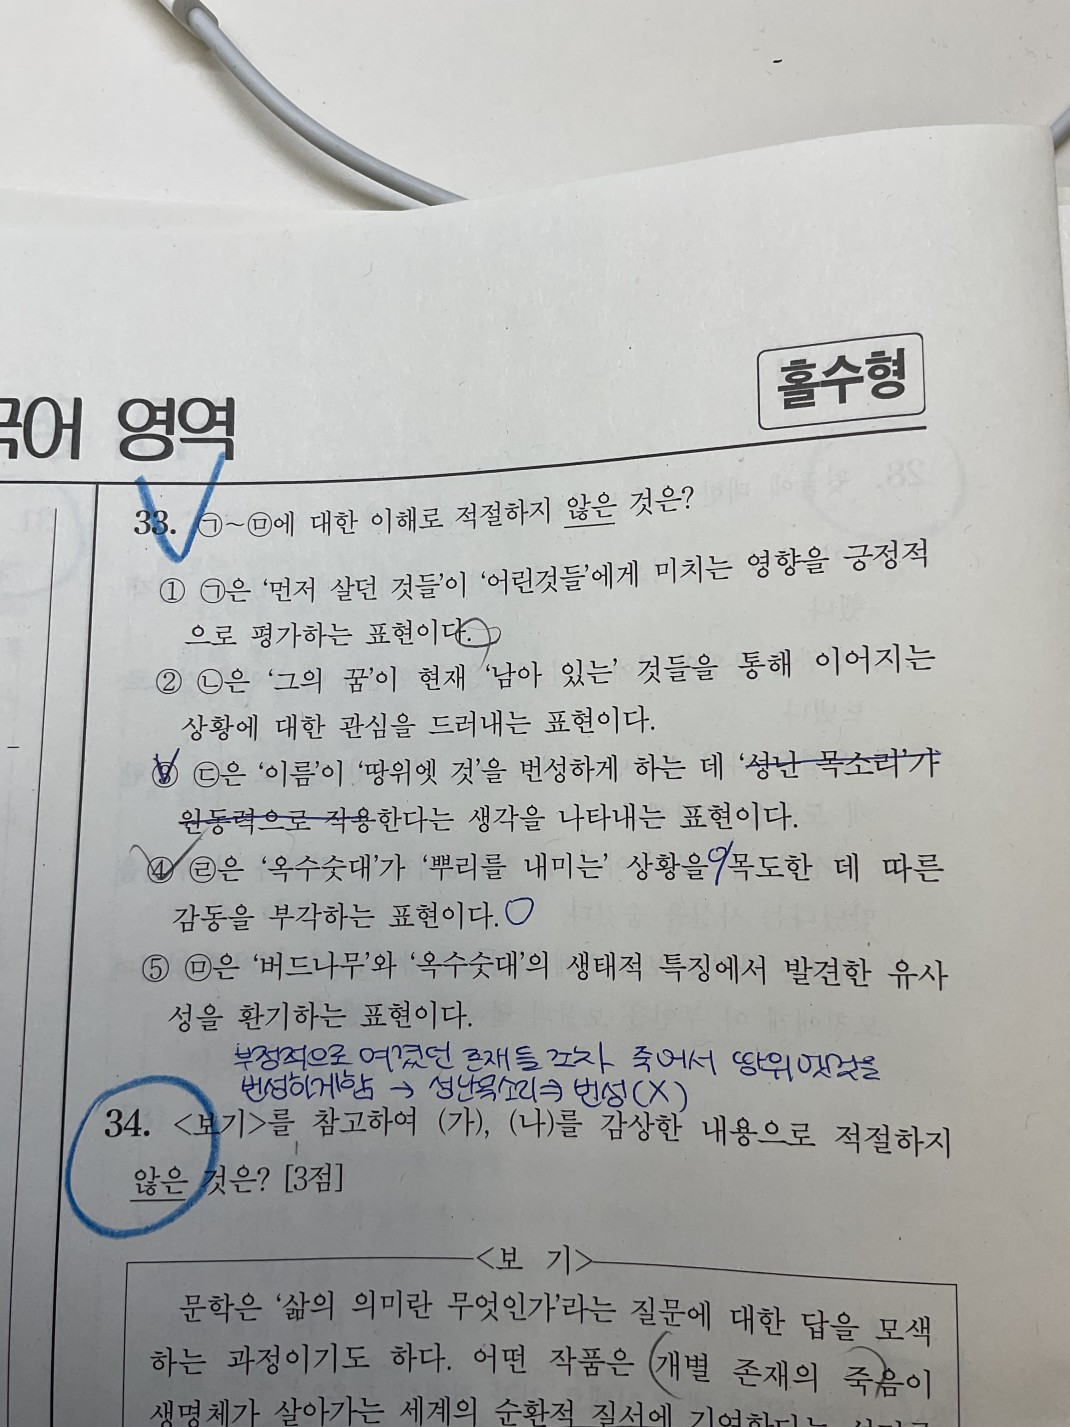 홀수형
국어 영역
33. ㉠～㉤에 대한 이해로 적절하지 않은 것은?
① ㉠은 ‘먼저 살던 것들’이 ‘어린것들’에게 미치는 영향을 긍정적
으로 평가하는 표현이다.
② ㉡은 ‘그의 꿈’이 현재 ‘남아 있는’ 것들을 통해 이어지는
상황에 대한 관심을 드러내는 표현이다.
③ ㉢은 ‘이름’이 ‘땅위엣 것’을 번성하게 하는 데 ‘성난 목소리’가
원동력으로 작용한다는 생각을 나타내는 표현이다.
④ ㉣은 ‘옥수숫대’가 ‘뿌리를 내미는’ 상황을 목도한 데 따른
감동을 부각하는 표현이다.
⑤ ㉤은 ‘버드나무’와 ‘옥수숫대’의 생태적 특징에서 발견한 유사
성을 환기하는 표현이다.
부정적으로 여겼던 존재들 각자 죽어서 땅위엣것을
번성하게함 → 성난목소리⇒ 번성(X)
34. <보기>를 참고하여 (가), (나)를 감상한 내용으로 적절하지
않은 것은? [3점]
<보 기>
문학은 ‘삶의 의미란 무엇인가’라는 질문에 대한 답을 모색
하는 과정이기도 하다. 어떤 작품은 개별 존재의 죽음이
생명체가 살아가는 세계의 순환적 질서에 기여한다는